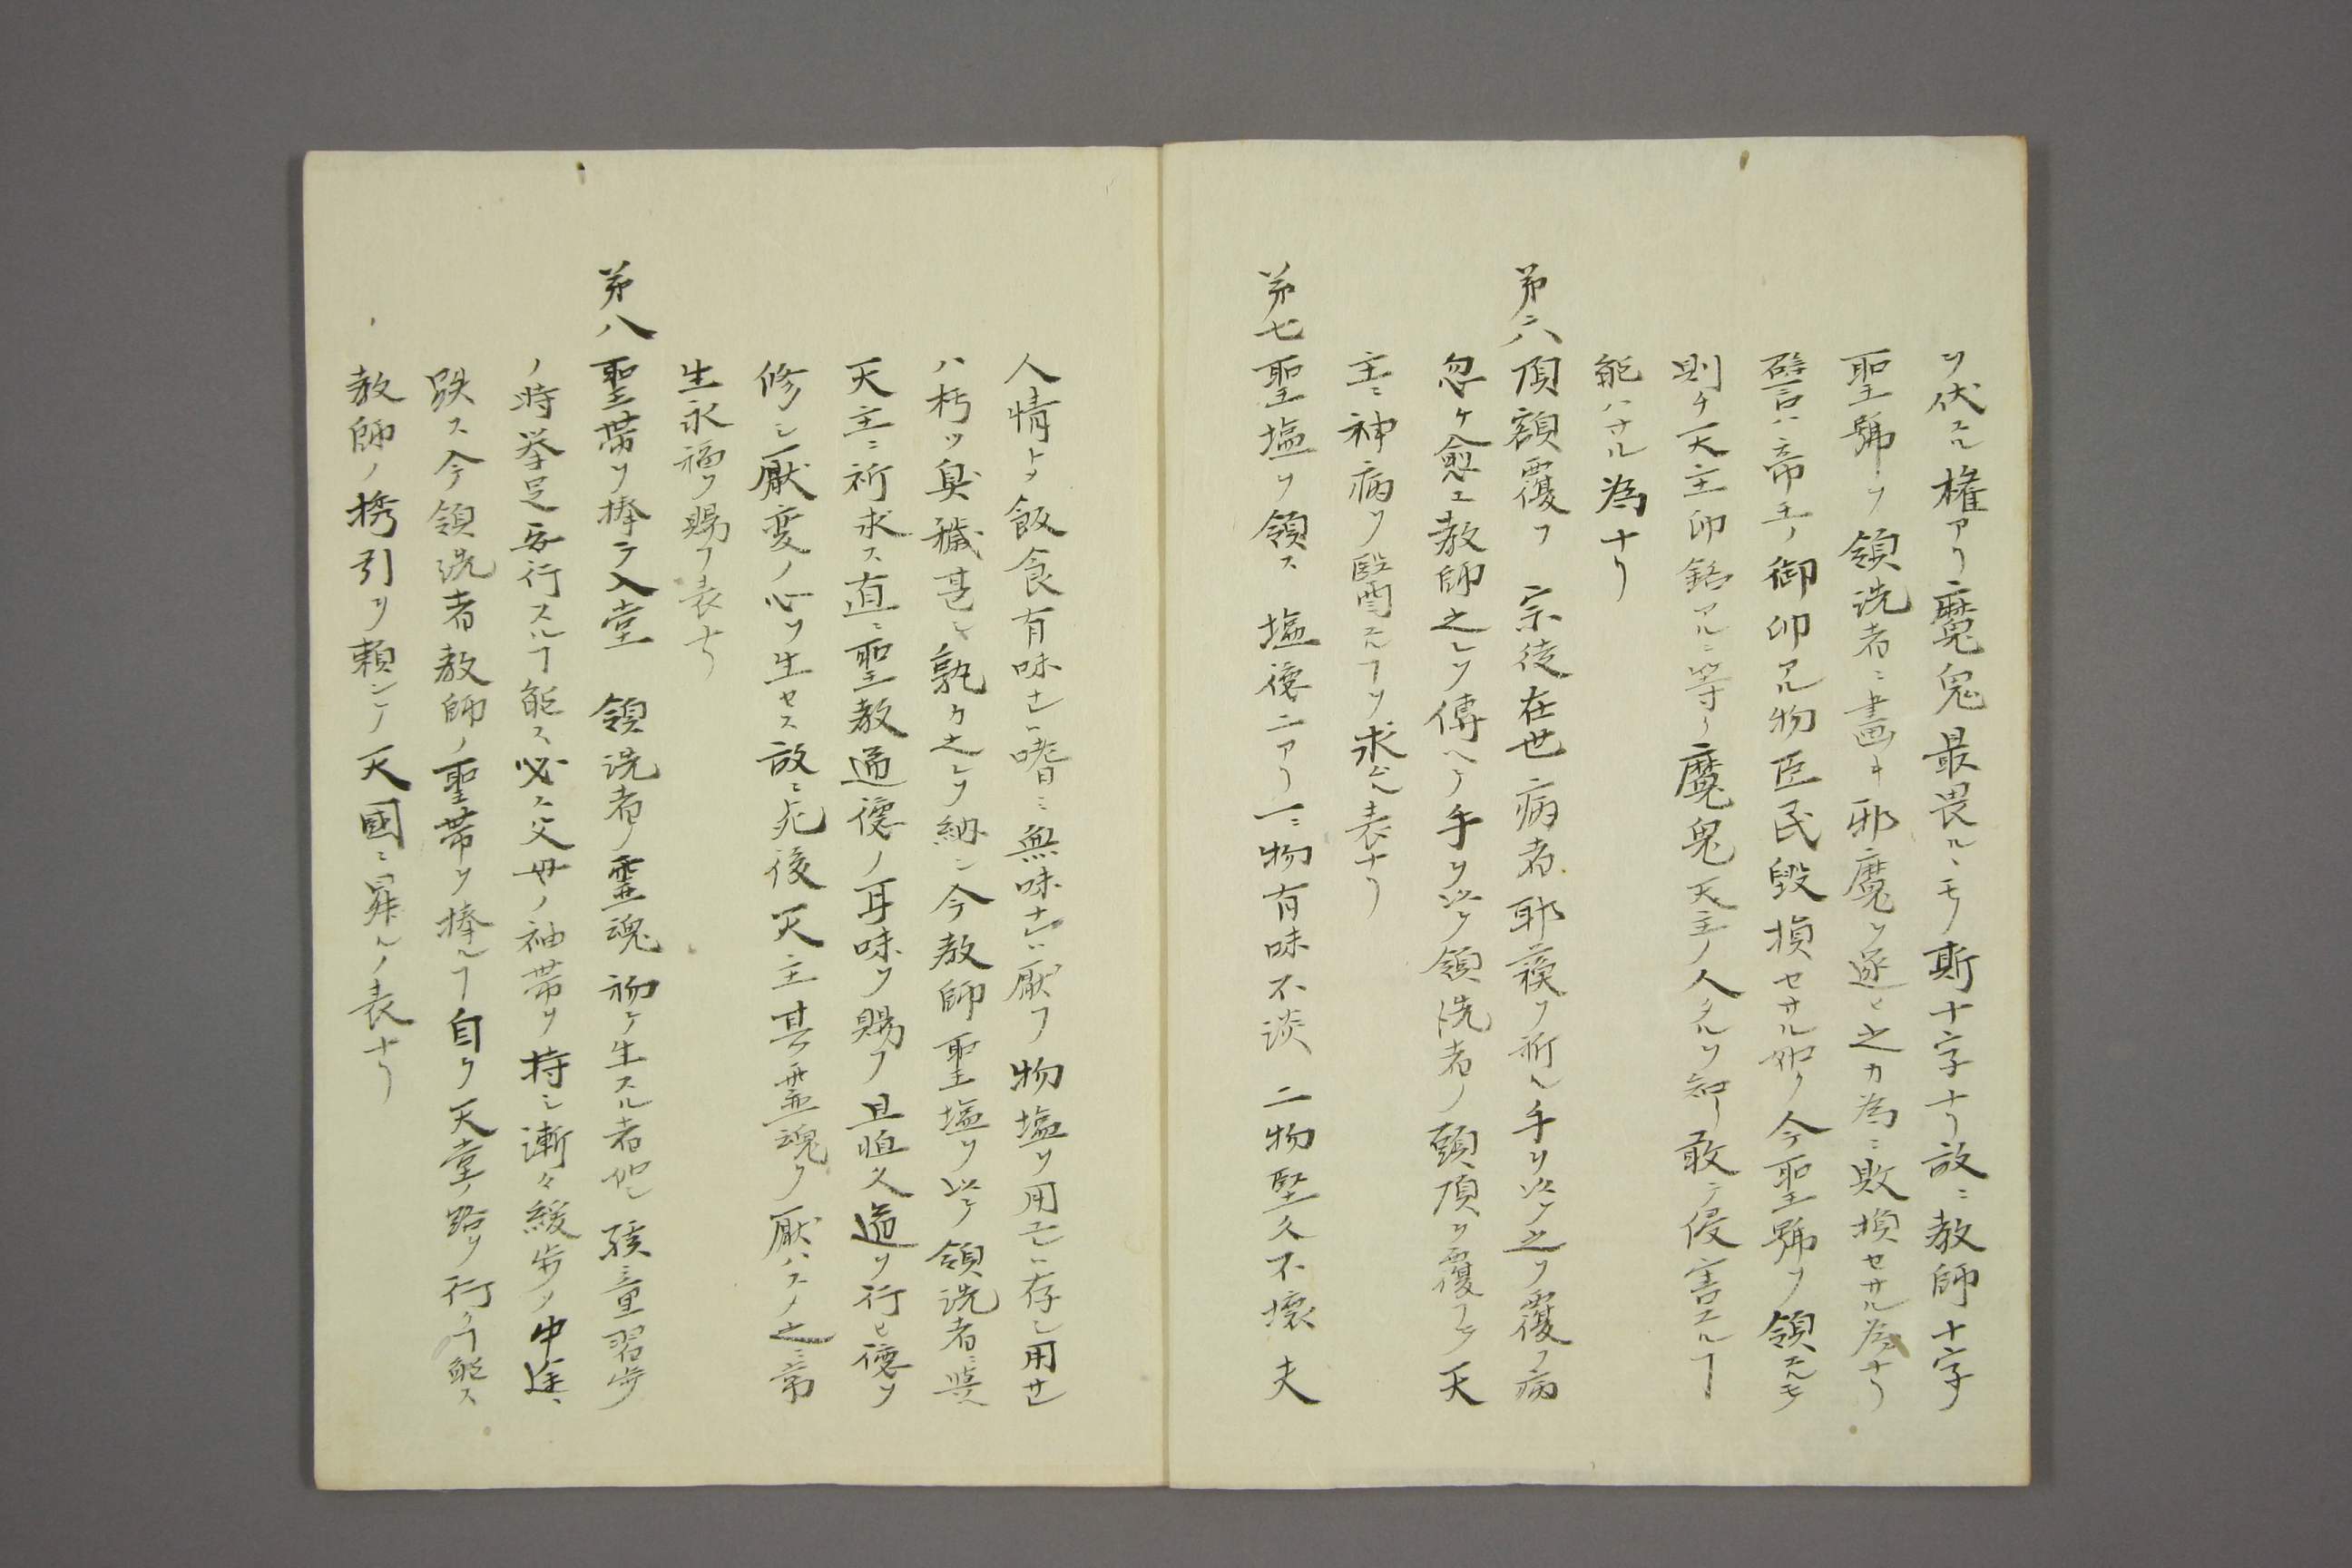 ヲ伏スル権アリ魔鬼最畏ルヽモノ斯十字ナリ故ニ教師十字
聖號ヲ領洗者ニ畫キ邪魔ヲ逐ヒ之カ為ニ敗損セサル為ナリ
譬言ハ帝王ノ御印アル物臣民毀損セサル如ク今聖號ヲ領スルモノ
則チ天主印銘アルニ等シ魔鬼天主ノ人タルヲ知リ敢テ侵害スルヿ
能ハサル為ナリ
第六頂額覆フ 宗徒在世病者耶蘓ヲ祈ヘ手ヲ以テ之ヲ覆フ病
忽ケ愈エ教師之レヲ傳ヘテ手ヲ以テ領洗者ノ頭頂ヲ覆フテ天
主ニ神病ヲ醫スルヿヲ求ムル表ナリ
第七聖塩ヲ領ス 塩徳ニアリ一ニ物有味不淡 二物堅久不壊 夫
人情トメ飯食有味ナレハ嗜ミ無味ナレハ厭フ物塩ヲ用ユレハ存シ用サレ
ハ朽ツ臭穢甚シ孰カ之レヲ納ン今教師聖塩ヲ以テ領洗者ニ與ヘ
天主ニ祈求ス直ニ聖教通徳ノ耳味ヲ賜フ且恒久道ヲ行ヒ徳ヲ
修シ厭変ノ心ヲ生セス故ニ死後天主其霊魂ヲ厭ハスノ之ニ常
生永福ヲ賜フ表ナリ
第八聖帯ヲ捧テ入堂 領洗者ノ霊魂初テ生スル者他シ孩童習歩
ノ時挙足安行スルヿ能ス必ス父母ノ袖帯ヲ持シ漸々緩歩ノ中途ニ
跌ス今領洗者教師ノ聖帯ヲ捧ルヿ自ク天堂ノ路ヲ行クヿ能ス
教師ノ携引ヲ頼シテ天國ニ昇ルノ表ナリ